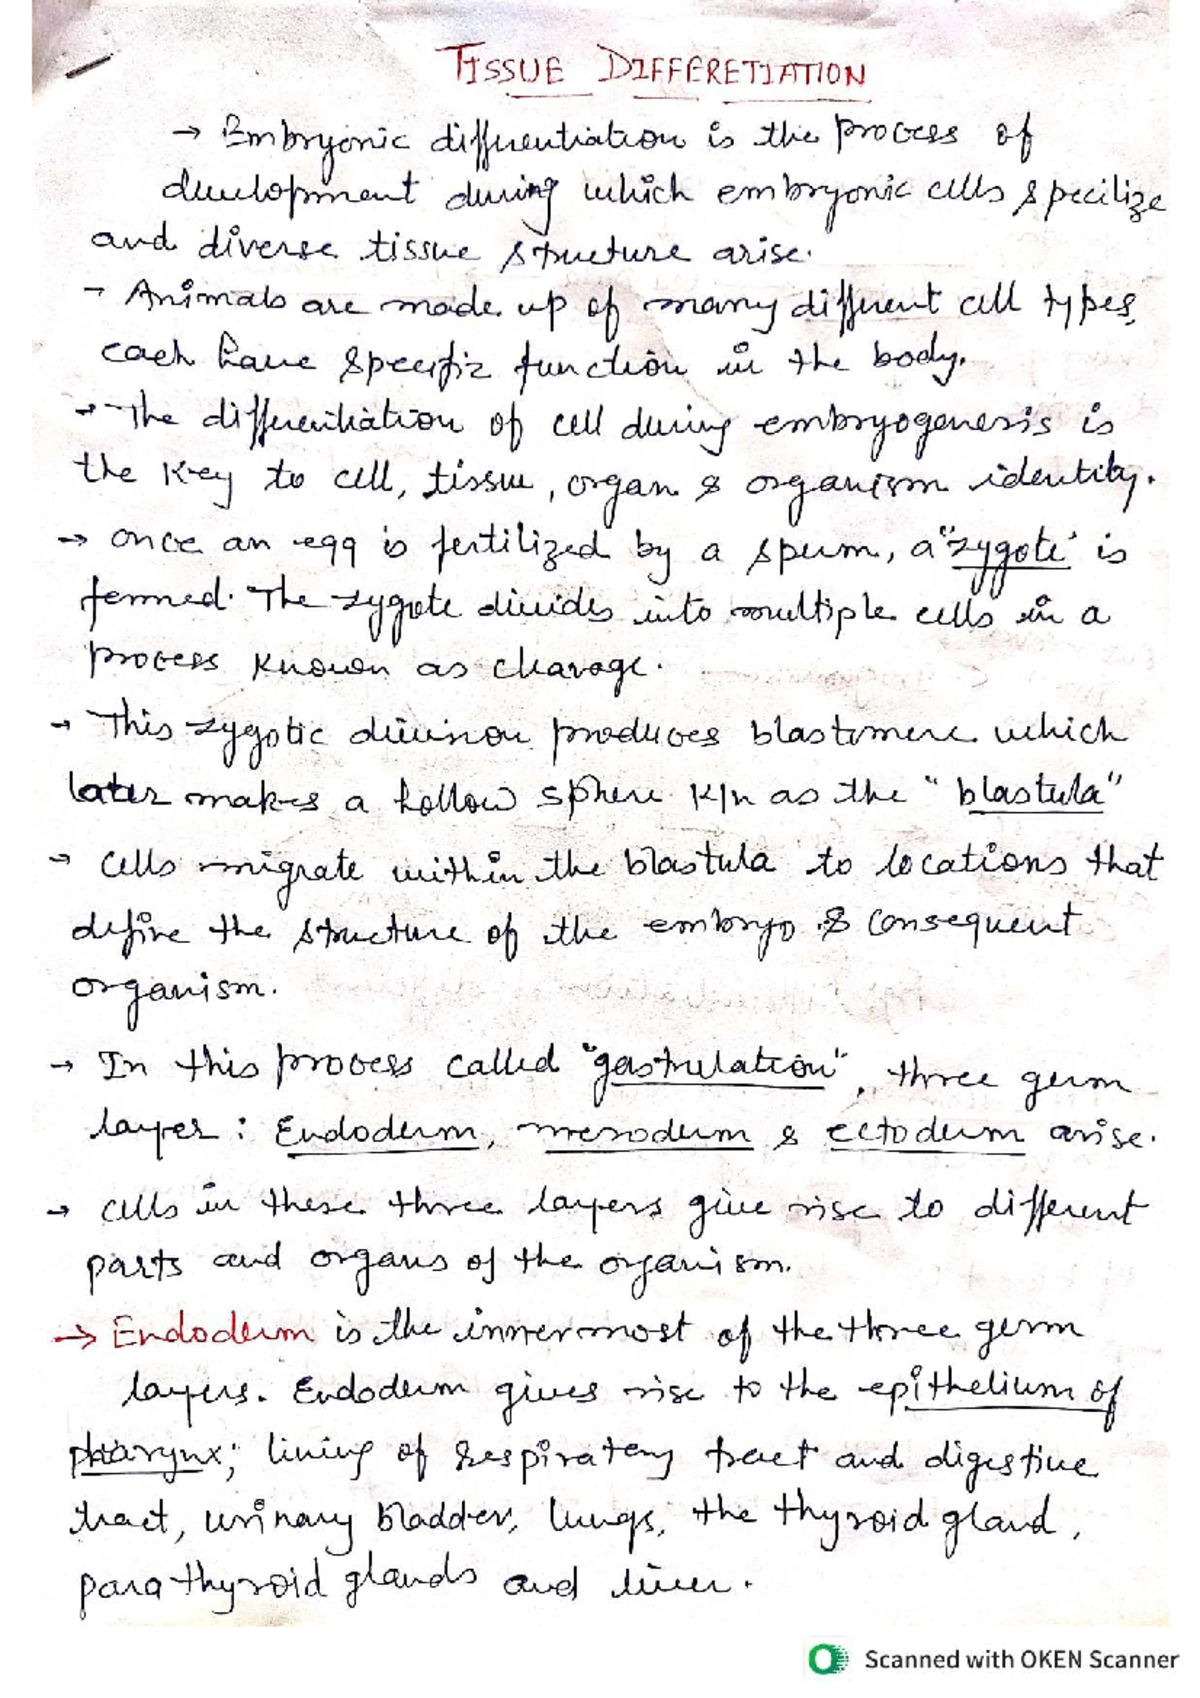 TISSUE DIFFERETIATION
→ Embryonic differentiation is the process of
development during which embryonic cells specilize
and diverse tissue structure arise.
→ Animals are made up of many different cell types,
each have specific function in the body.
→ The differentiation of cell during embryogenesis is
the key to cell, tissue, organ & organism identity.
→ once an egg is fertilized by a sperm, a "zygote" is
formed. The zygote divides into multiple cells in a
process known as clavage.
→ This zygotic division produces blastomere which
later makes a hollow sphere k/n as the "blastula"
→ cells migrate within the blastula to locations that
define the structure of the embryo & consequent
organism.
→ In this process called "gastrulation", three germ
layer: Endoderm, mesoderm & ectoderm arise.
→ cells in these three layers give rise to different
parts and organs of the organism.
→ Endoderm is the innermost of the three germ
layers. Endoderm gives rise to the epithelium of
pharynx; lining of respiratory tract and digestive
tract, urinary bladder, lungs, the thyroid gland,
parathyroid glands and liver.
Scanned with OKEN Scanner